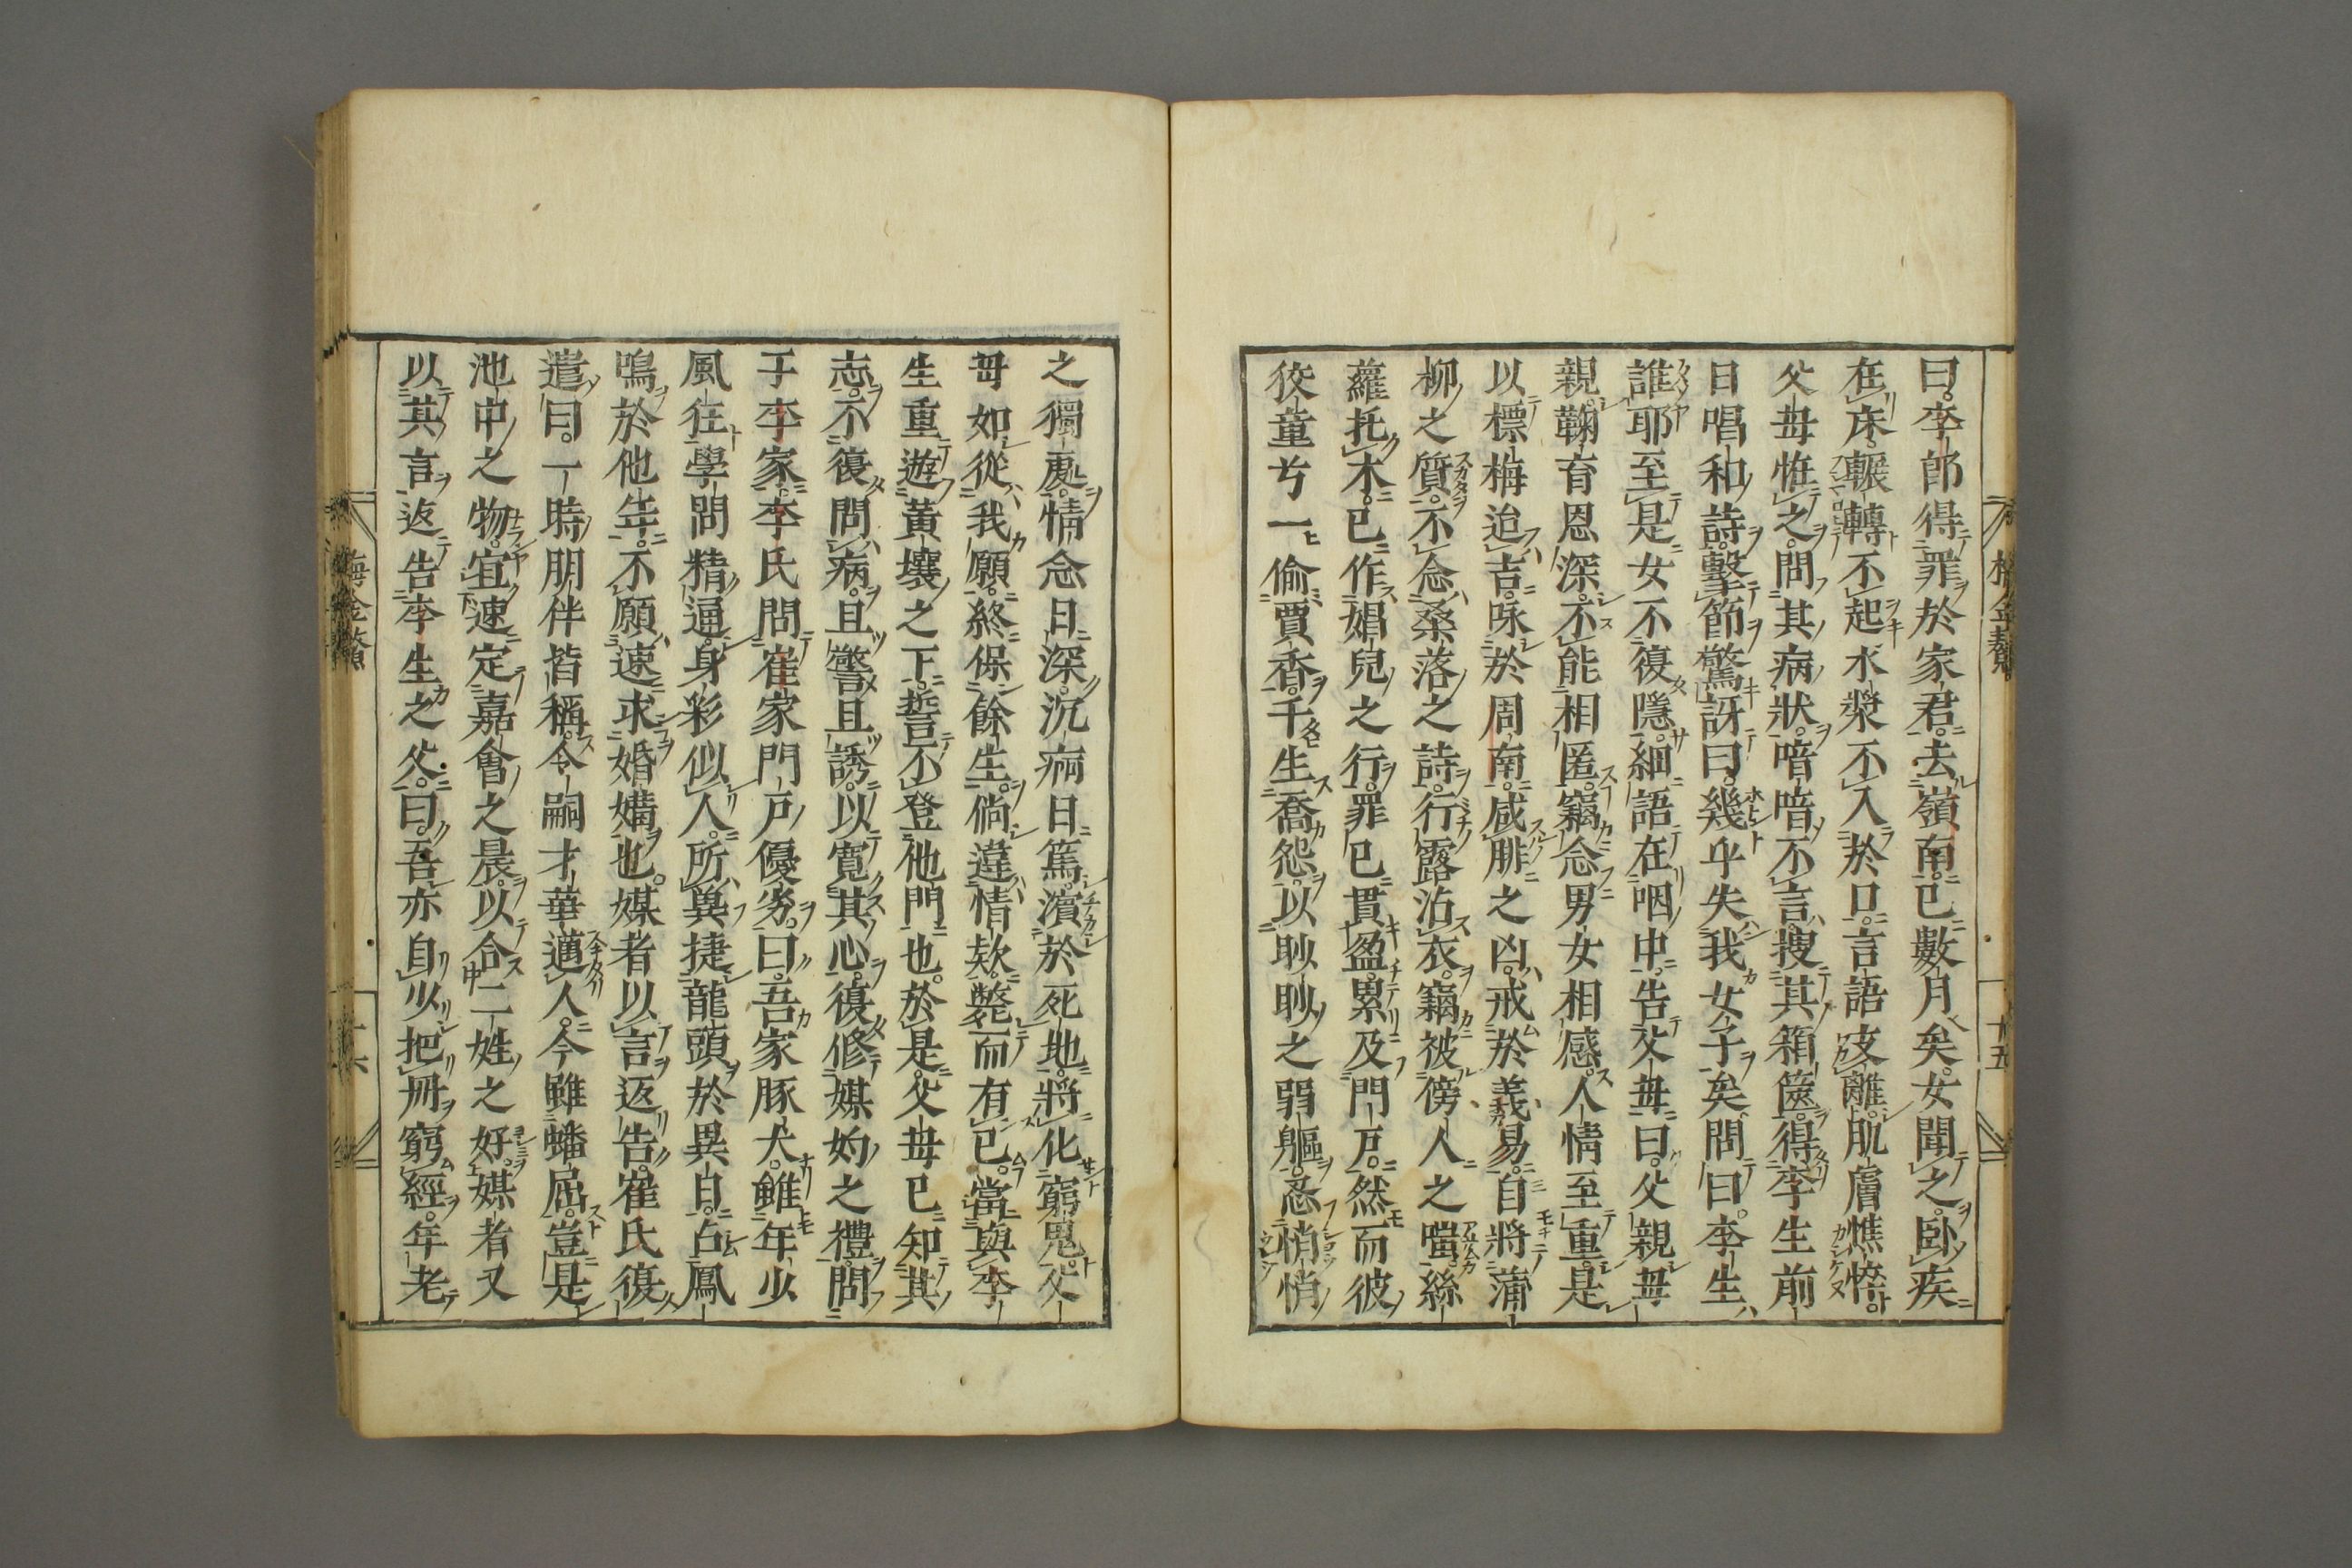 曰。李郎得罪於家君。去嶺南。已數月矣。女聞之。臥疾
在床。輾轉不起。水漿不入於口。言語支離。肌膚憔悴。
父母恠之。問其病狀。喑喑不言。搜其箱篋。得李生前
日唱和詩。擊節驚訝曰。幾乎失我女子矣。問曰。李生
誰耶。至是女不復隱。細語在咽中。告父母曰。父親母
親。鞠育恩深。不能相匿。竊念男女相感。人情至重。是
以標梅迨吉。咏於周南。咸腓之凶。戒於羲易。自將蒲
柳之質。不念桑落之詩。行露沾衣。竊被傍人之嗤。絲
蘿托木。已作娼兒之行。罪已貫盈。累及門戶。然而彼
狡童兮。一偷賈香。千生喬怨。以眇眇之弱軀。忍悄悄
之獨處。情念日深。沉痾日篤。濱於死地。將化窮鬼。父
母如從我願。終保餘生。倘違情欵。斃而有已。當與李
生重遊黃壤之下。誓不登他門也。於是。父母已知其
志。不復問病。且警且誘。以寬其心。復修媒妁之禮。問
于李家。李氏問崔家門戶優劣。曰。吾家豚犬。雖年少
風狂。學問精通。身彩似人。所冀捷龍頭於異日。占鳳
鳴於他年。不願速求婚媾也。媒者以言返告。崔氏復
遣曰。一時朋伴皆稱。令嗣才華邁人。今雖蟠屈。豈是
池中之物。宜速定嘉會之晨。以合二姓之好。媒者又
以其言返告李生之父。曰。吾亦自少把冊窮經。年老
梅金鰲
十五